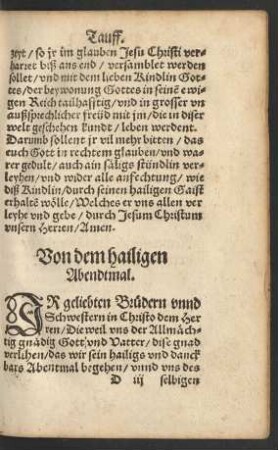 Tauff.
zeyt / so jr im glauben Jesu Christi ver-
harret biß ans end / versamblet werden
sollet / vnd mit dem lieben Kindlin Got-
tes / der beywonung Gottes in seinẽ ewi-
gen Reich tailhafftig / vnd in grosser vñ
außsprechlicher freüd mit jm / die in diser
welt geschehen kundt / leben werdent.
Darumb sollent jr vil mehr bitten / das
euch Gott in rechtem glauben / vnd wa-
rer gedult / auch ain säligs stündlin ver-
leyhen / vnd wider alle anfechtung / wie
diß Kindlin / durch seinen hailigen Gaist
erhaltẽ wölle / Welches er vns allen ver
leyhe vnd gebe / durch Jesum Christum
vnsern Herren / Amen.
Von dem hailigen
Abendtmal.
IR geliebten Brüdern vnnd
Schwestern in Christo dem Her
ren / Die weil vns der Allmäch-
tig gnädig Gott vnd Vatter / dise gnad
verlihen / das wir sein hailigs vnd danck
bars Abentmal begehen / vnnd vns des
D iij selbigen